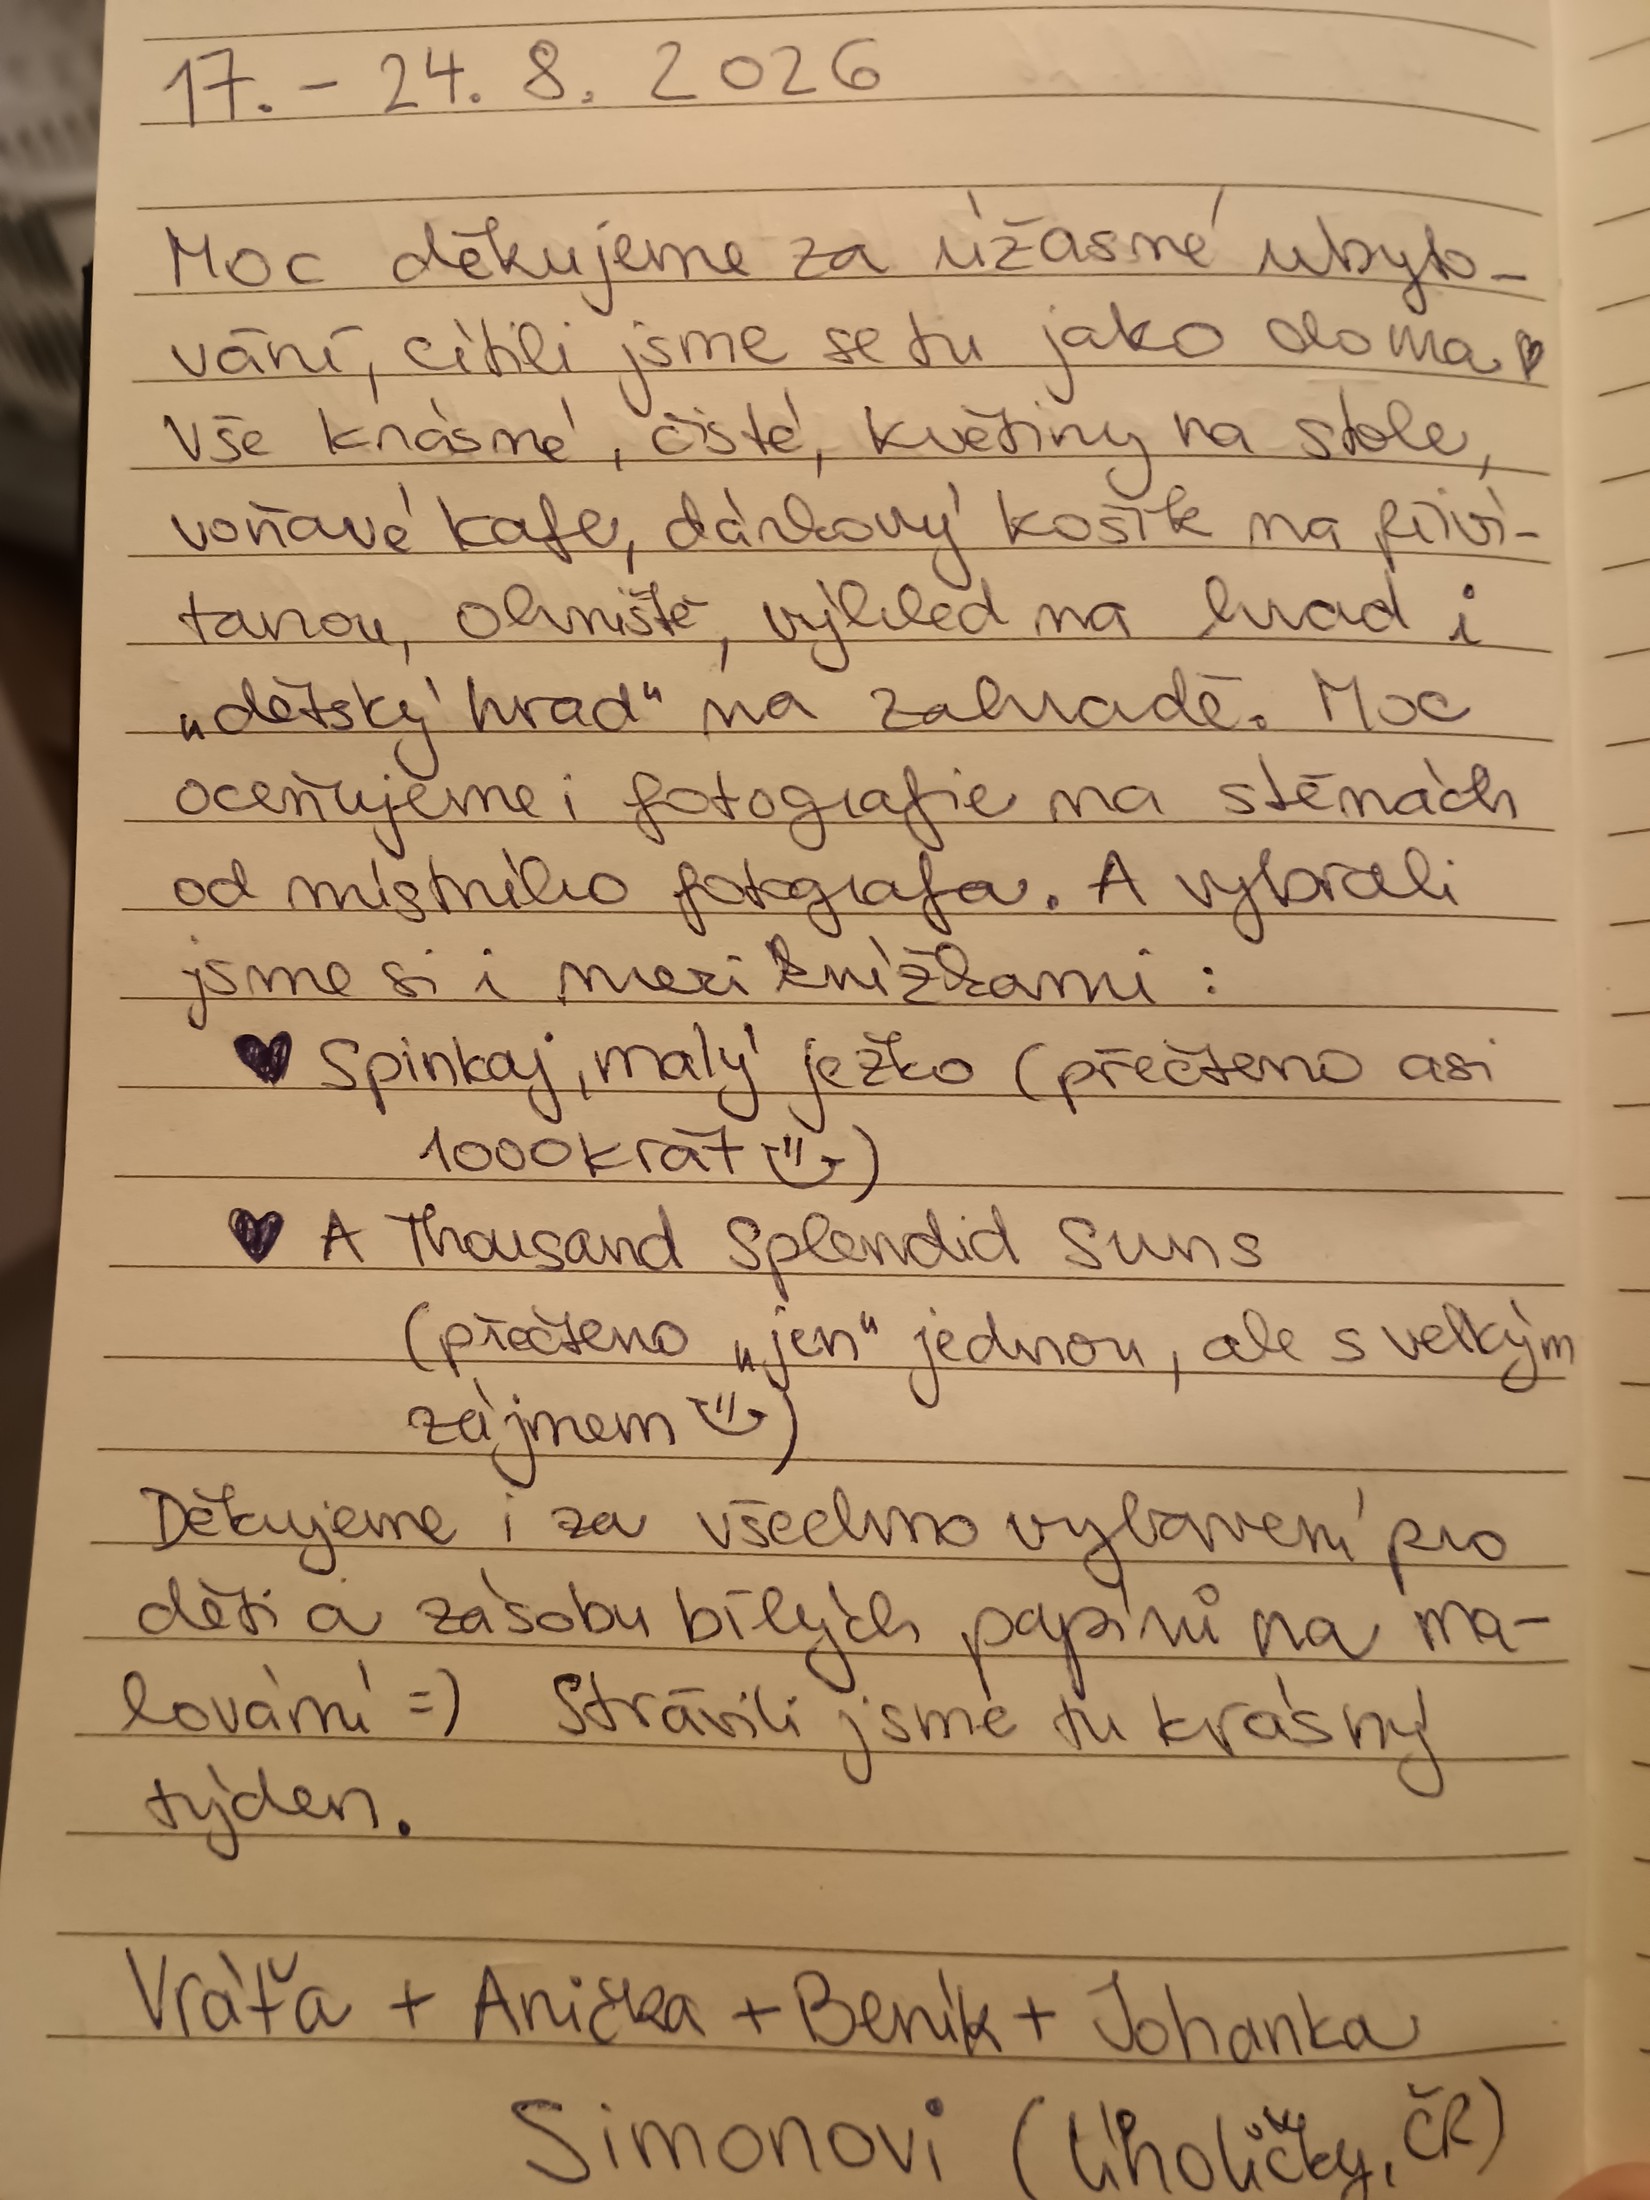 17. - 24. 8. 2026
Moc děkujeme za úžasné ubyto-
vání, cítili jsme se tu jako doma ♥
Vše krásné, čisté, květiny na stole,
voňavé kafe, dárkový košík na přiví-
tanou, ohniště, výhled na hrad i
„dětský hrad“ na zahradě. Moc
oceňujeme i fotografie na stěnách
od místního fotografa. A vybrali
jsme si i mezi knížkami :
♥ Spinkaj, malý ježko (přečteno asi
1000krát)
♥ A Thousand Splendid Suns
(přečteno „jen“ jednou, ale s velkým
zájmem)
Děkujeme i za všechno vybavení pro
děti a zásobu bílých papírů na ma-
lování =) Strávili jsme tu krásný
týden.
Vráťa + Anička + Beník + Johanka
Simonovi (Úholičky, ČR)